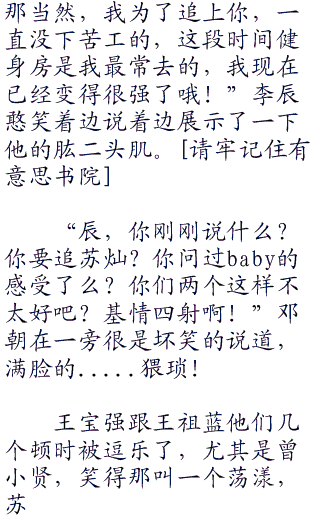 那当然，我为了追上你，一
直没下苦工的，这段时间健
身房是我最常去的，我现在
已经变得很强了哦！”李辰
憨笑着边说着边展示了一下
他的肱二头肌。[请牢记住有
意思书院]
“辰，你刚刚说什么？
你要追苏灿？你问过baby的
感受了么？你们两个这样不
太好吧？基情四射啊！”邓
朝在一旁很是坏笑的说道，
满脸的.....猥琐！
王宝强跟王祖蓝他们几
个顿时被逗乐了，尤其是曾
小贤，笑得那叫一个荡漾，
苏